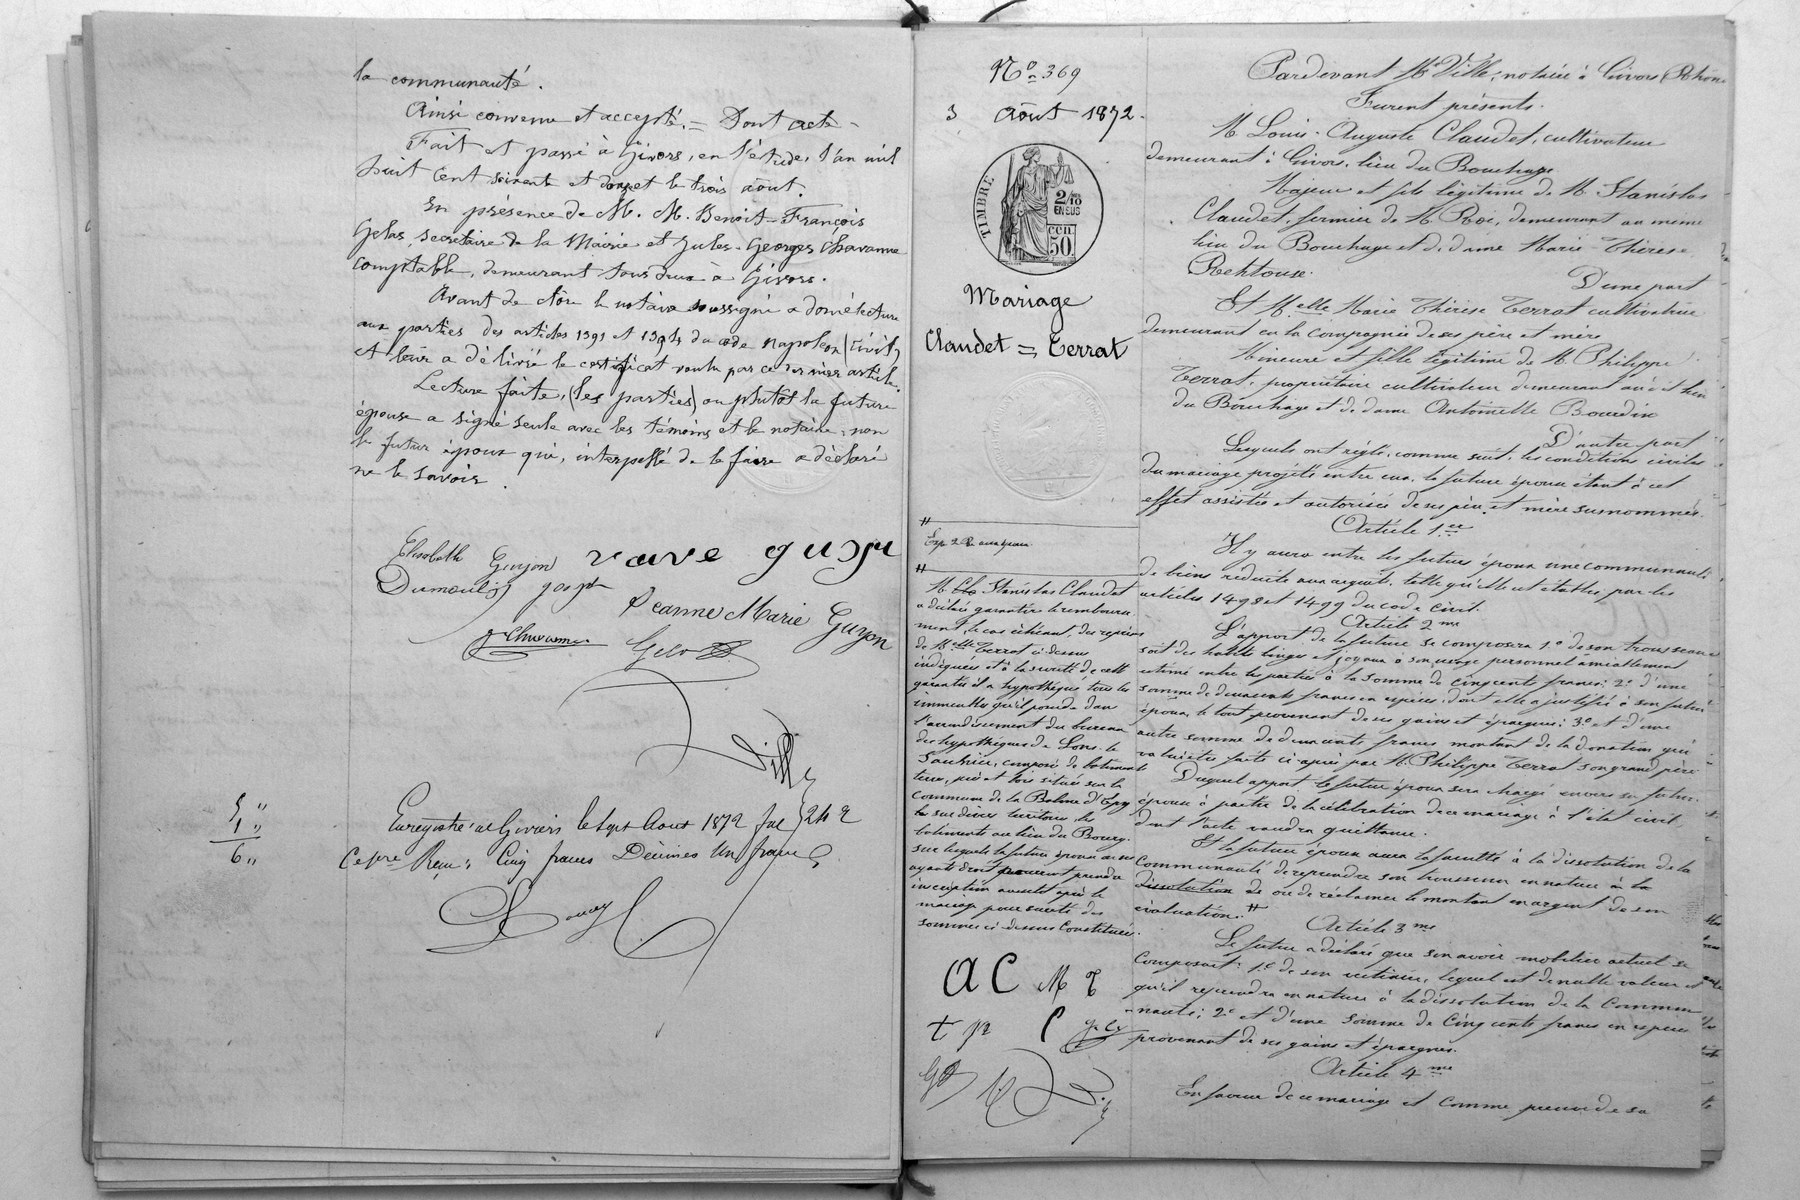 la communauté.
Ainsi convenu et accepté. = Dont acte -
Fait et passé à Givors, en l'étude, l'an mil
huit cent soixante et douze et le trois août.
En présence de M. M. Benoit-François
Gelas, secrétaire de la Mairie et Jules-Georges Chavanne
comptable, demeurant tous deux à Givors.
Avant de clôre le notaire soussigné a donné lecture
aux parties des articles 1391 et 1394 du code Napoléon (civil)
et leur a délivré le certificat voulu par ce dernier article.
Lecture faite, (les parties) ou plutôt la future
épouse a signé seule avec les témoins et le notaire, non
le futur époux qui, interpellé de le faire a déclaré
ne le savoir.
Elisabeth Guyon
Dumoulin joseph
Jeanne Marie Guyon
JChavanne
Gelas
Ville
5 "
1 "
6 "
Enregistré à Givors le sept Aout 1872 fol 24 R
Cése Reçu: Cinq francs Décimes Un franc
No 369
3 août 1872.
TIMBRE
2/10
EN SUS
50 CEN
Mariage
Claudet = Terrat
M. Stanislas Claudet
a déclaré garantir le rembourse
ment, le cas échéant, des reprises
de Melle Terrat ci dessus
indiquées et à la sureté de cette
garantie il a hypothéqué tous les
immeubles qu'il possède dans
l'arrondissement du bureau
des hypothèques de Lons-le
Saunier, composé de batiments
terres, pré et bois situés sur la
commune de la Balme d'Epy
les batiments au lieu du Bourg.
sur lesquels la future épouse ou ses
ayants droit pourront prendre
inscription aussitôt après le
mariage pour sureté des
sommes ci dessus constituées.
AC M T
t p
Pardevant Me Ville, notaire à Givors (Rhône
Furent présents.
M. Louis-Auguste Claudet, cultivateur
demeurant à Givors, lieu du Bouchage
Majeur et fils légitime de M. Stanislas
Claudet, fermier de M. Roi, demeurant au même
lieu du Bouchage et de dame Marie-Thérèse
D'une part
Et Melle Marie Thérèse Terrat cultivatrice
demeurant en la compagnie de ses père et mère
Mineure et fille légitime de M. Philippe
Terrat, propriétaire cultivateur demeurant au dit lieu
du Bouchage et de dame Antoinette Bourdin
D'autre part
Lesquels ont réglé, comme suit, les conditions civiles
du mariage projeté entre eux, la future épouse étant à cet
effet assistée et autorisée de ses père et mère susnommés.
Article 1er
Il y aura entre les futurs époux une communauté
de biens réduite aux acquêts, telle qu'elle est établie par les
articles 1498 et 1499 du code civil.
Article 2me
L'apport de la future se composera 1o de son trousseau
soit des habits linges et joyaux à son usage personnel amiablement
estimé entre les parties à la somme de cinq cents francs; 2o d'une
somme de deux cents francs en espèces, dont elle a justifié à son futur
époux, le tout provenant de ses gains et épargnes; 3o et d'une
autre somme de deux cents francs montant de la donation qui
va lui être faite ci-après par M. Philippe Terrat son grand père
Duquel apport le futur époux sera chargé envers sa future
épouse à partir de la célébration de ce mariage à l'état civil
dont l'acte vaudra quittance.
Et la future épouse aura la faculté à la dissolution de la
communauté de reprendre son trousseau en nature à la
dissolution de ou de réclamer le montant en argent de son
évaluation.
Article 3me
Le futur a déclaré que son avoir mobilier actuel se
composait: 1o de son vestiaire, lequel est de nulle valeur et
qu'il reprendra en nature à la dissolution de la commu
nauté; 2o et d'une somme de cinq cents francs en espèces
provenant de ses gains et épargnes.
Article 4me
En faveur de ce mariage et comme preuve de sa